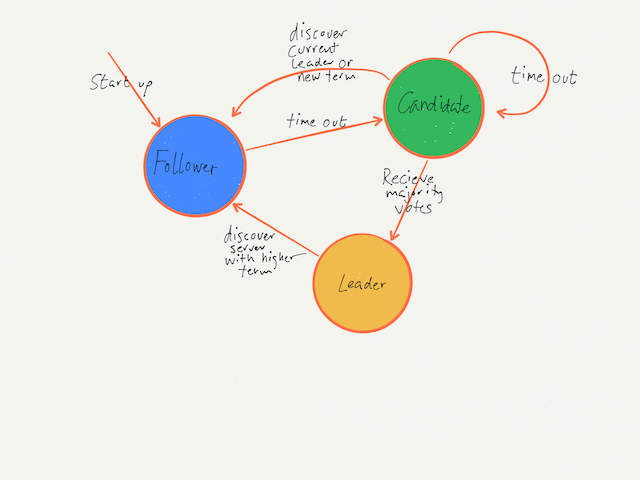 discover
current
leader or
new term
Start up
time out
Candidate
time out
Follower
Recieve
majority
votes
discover
server
with higher
term
Leader